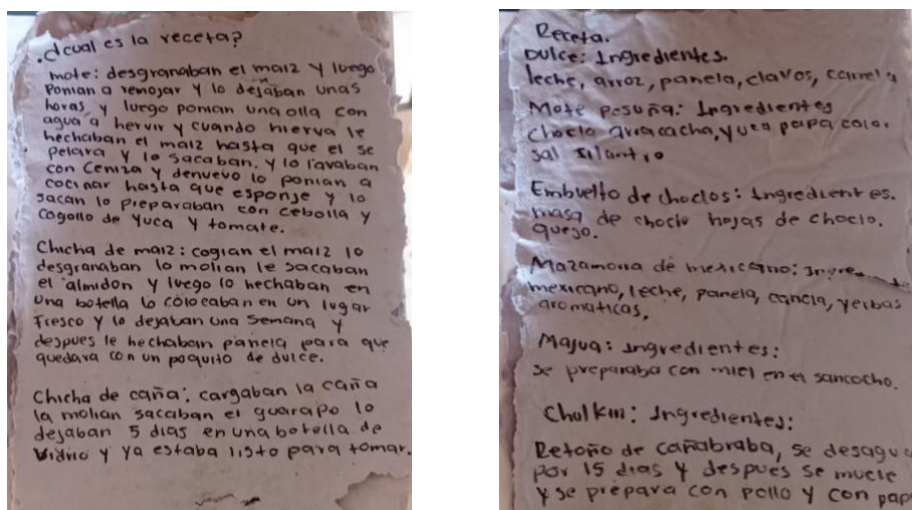 .¿cual es la receta?
mote: desgranaban el maiz y luego
Ponian a remojar y lo dejaban unas
horas, y luego ponian una olla con
agua a hervir y cuando hierva le
hechaban el maiz hasta que el se
pelara y lo sacaban, y lo lavaban
con ceniza y denuevo lo ponian a
cocinar hasta que esponje y lo
sacan lo preparaban con cebolla y
cogollo de yuca y tomate.
Chicha de maiz: cogian el maiz lo
desgranaban lo molian le sacaban
el almidon y luego lo hechaban en
una botella lo colocaban en un lugar
Fresco y lo dejaban una semana y
despues le hechaban panela para que
quedara con un poquito de dulce.
Chicha de caña: cargaban la caña
la molian sacaban el guarapo lo
dejaban 5 dias en una botella de
vidrio y ya estaba listo para tomar.
Receta.
Dulce: Ingredientes.
leche, arroz, panela, clavos,
Mote pesuña: Ingredientes
choclo arracacha, yuca papa color
sal silantro
Embuelto de choclos: Ingredientes.
masa de choclo hojas de choclo.
quejo.
Mazamorra de mexicano:
mexicano, leche, panela, canela, yerbas
aromaticas.
Majua: Ingredientes:
se preparaba con miel en el sancocho.
Chulkin: Ingredientes:
Retoño de cañabraba, se desagua
por 15 dias y después se muele
y se prepara con pollo y con pap